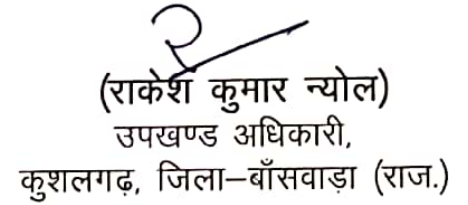 (राकेश कुमार न्योल)
उपखण्ड अधिकारी,
कुशलगढ़, जिला–बाँसवाड़ा (राज.)